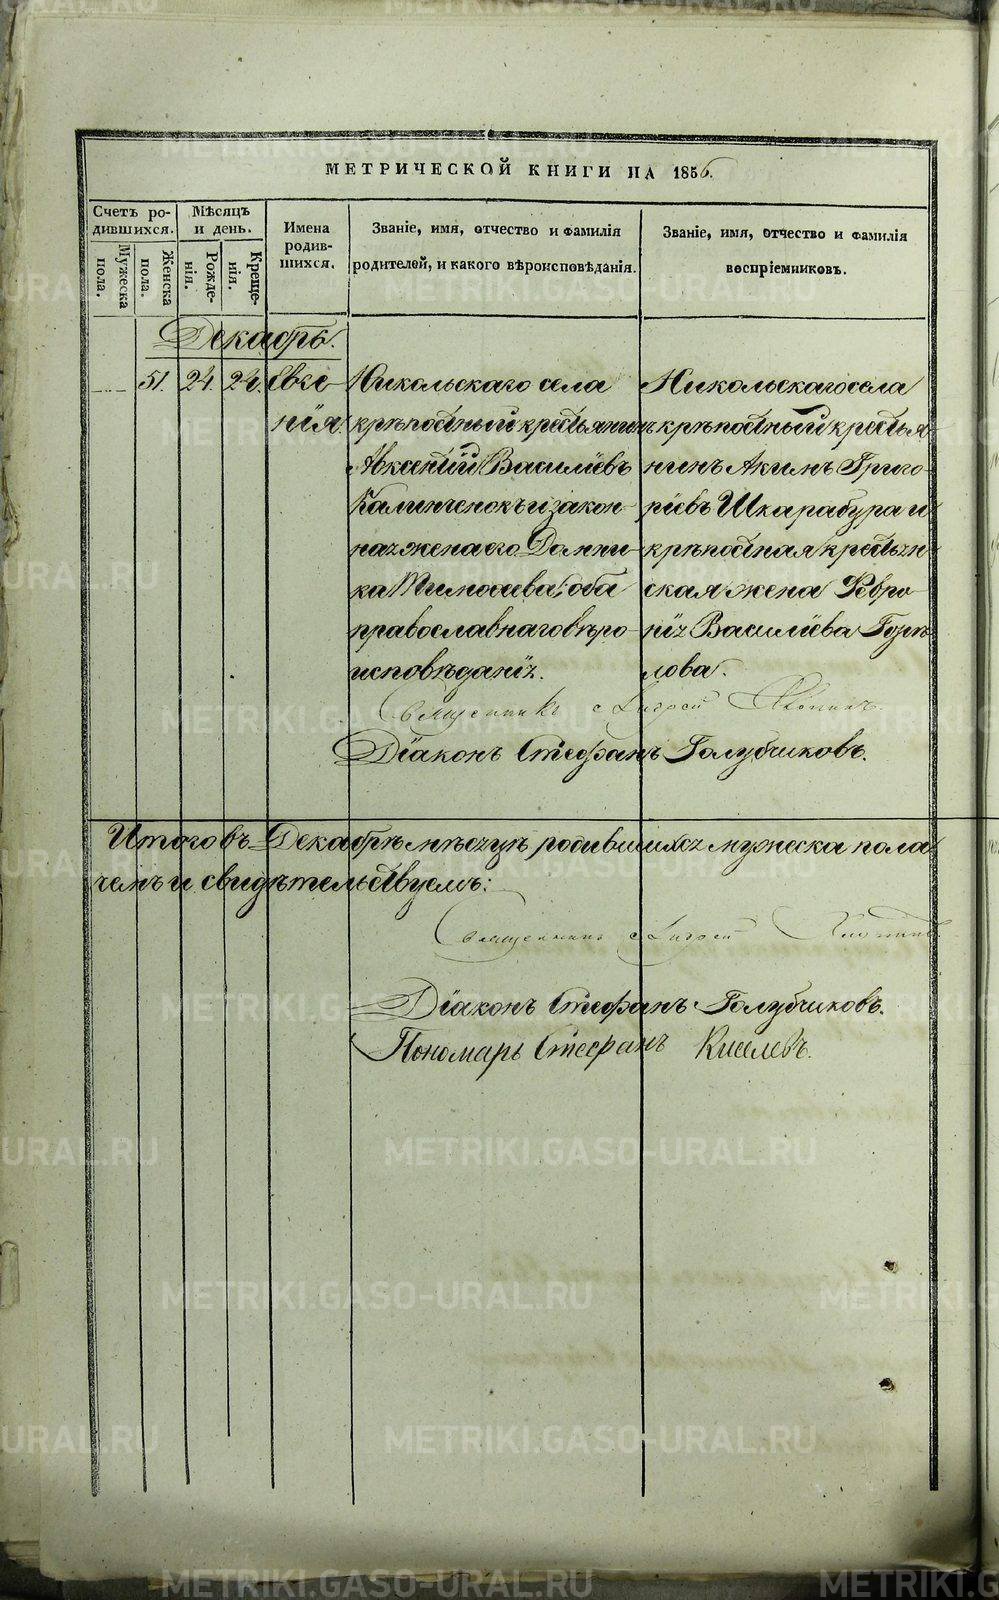 МЕТРИЧЕСКОЙ КНИГИ НА 1856.
Счетъ ро-
дившихся.
Мужеска
пола.
Женска
пола.
Мѣсяцъ
и день.
Рожде-
нія.
Креще-
нія.
Имена
родив-
шихся.
Званіе, имя, отчество и фамилія
родителей, и какого вѣроисповѣданія.
Званіе, имя, отчество и фамилія
воспріемниковъ.
Декабрь.
51. 24. 24. Евге-
нія.
Никольскаго села
крѣпостный крестьянинъ
Авксентій Василіевъ
Калинченокъ и закон-
ная жена его Домни-
ка Тимофеева; оба
православнаго вѣро-
исповѣданія.
Никольскаго села
крѣпостный крестья-
нинъ Акимъ Григо-
ріевъ Шкарабура и
крѣпостная крестьян
ская жена Февро-
нія Василіева
лова.
Священникъ Андрей
Діаконъ Стефанъ Голубчиковъ.
Итого въ Декабрѣ мѣсяцѣ родившихся мужеска пола
чемъ и свидѣтельствуемъ:
Священникъ Андрей
Діаконъ Стефанъ Голубчиковъ.
Пономарь Стефанъ Киселевъ.
METRIKI.GASO-URAL.RU